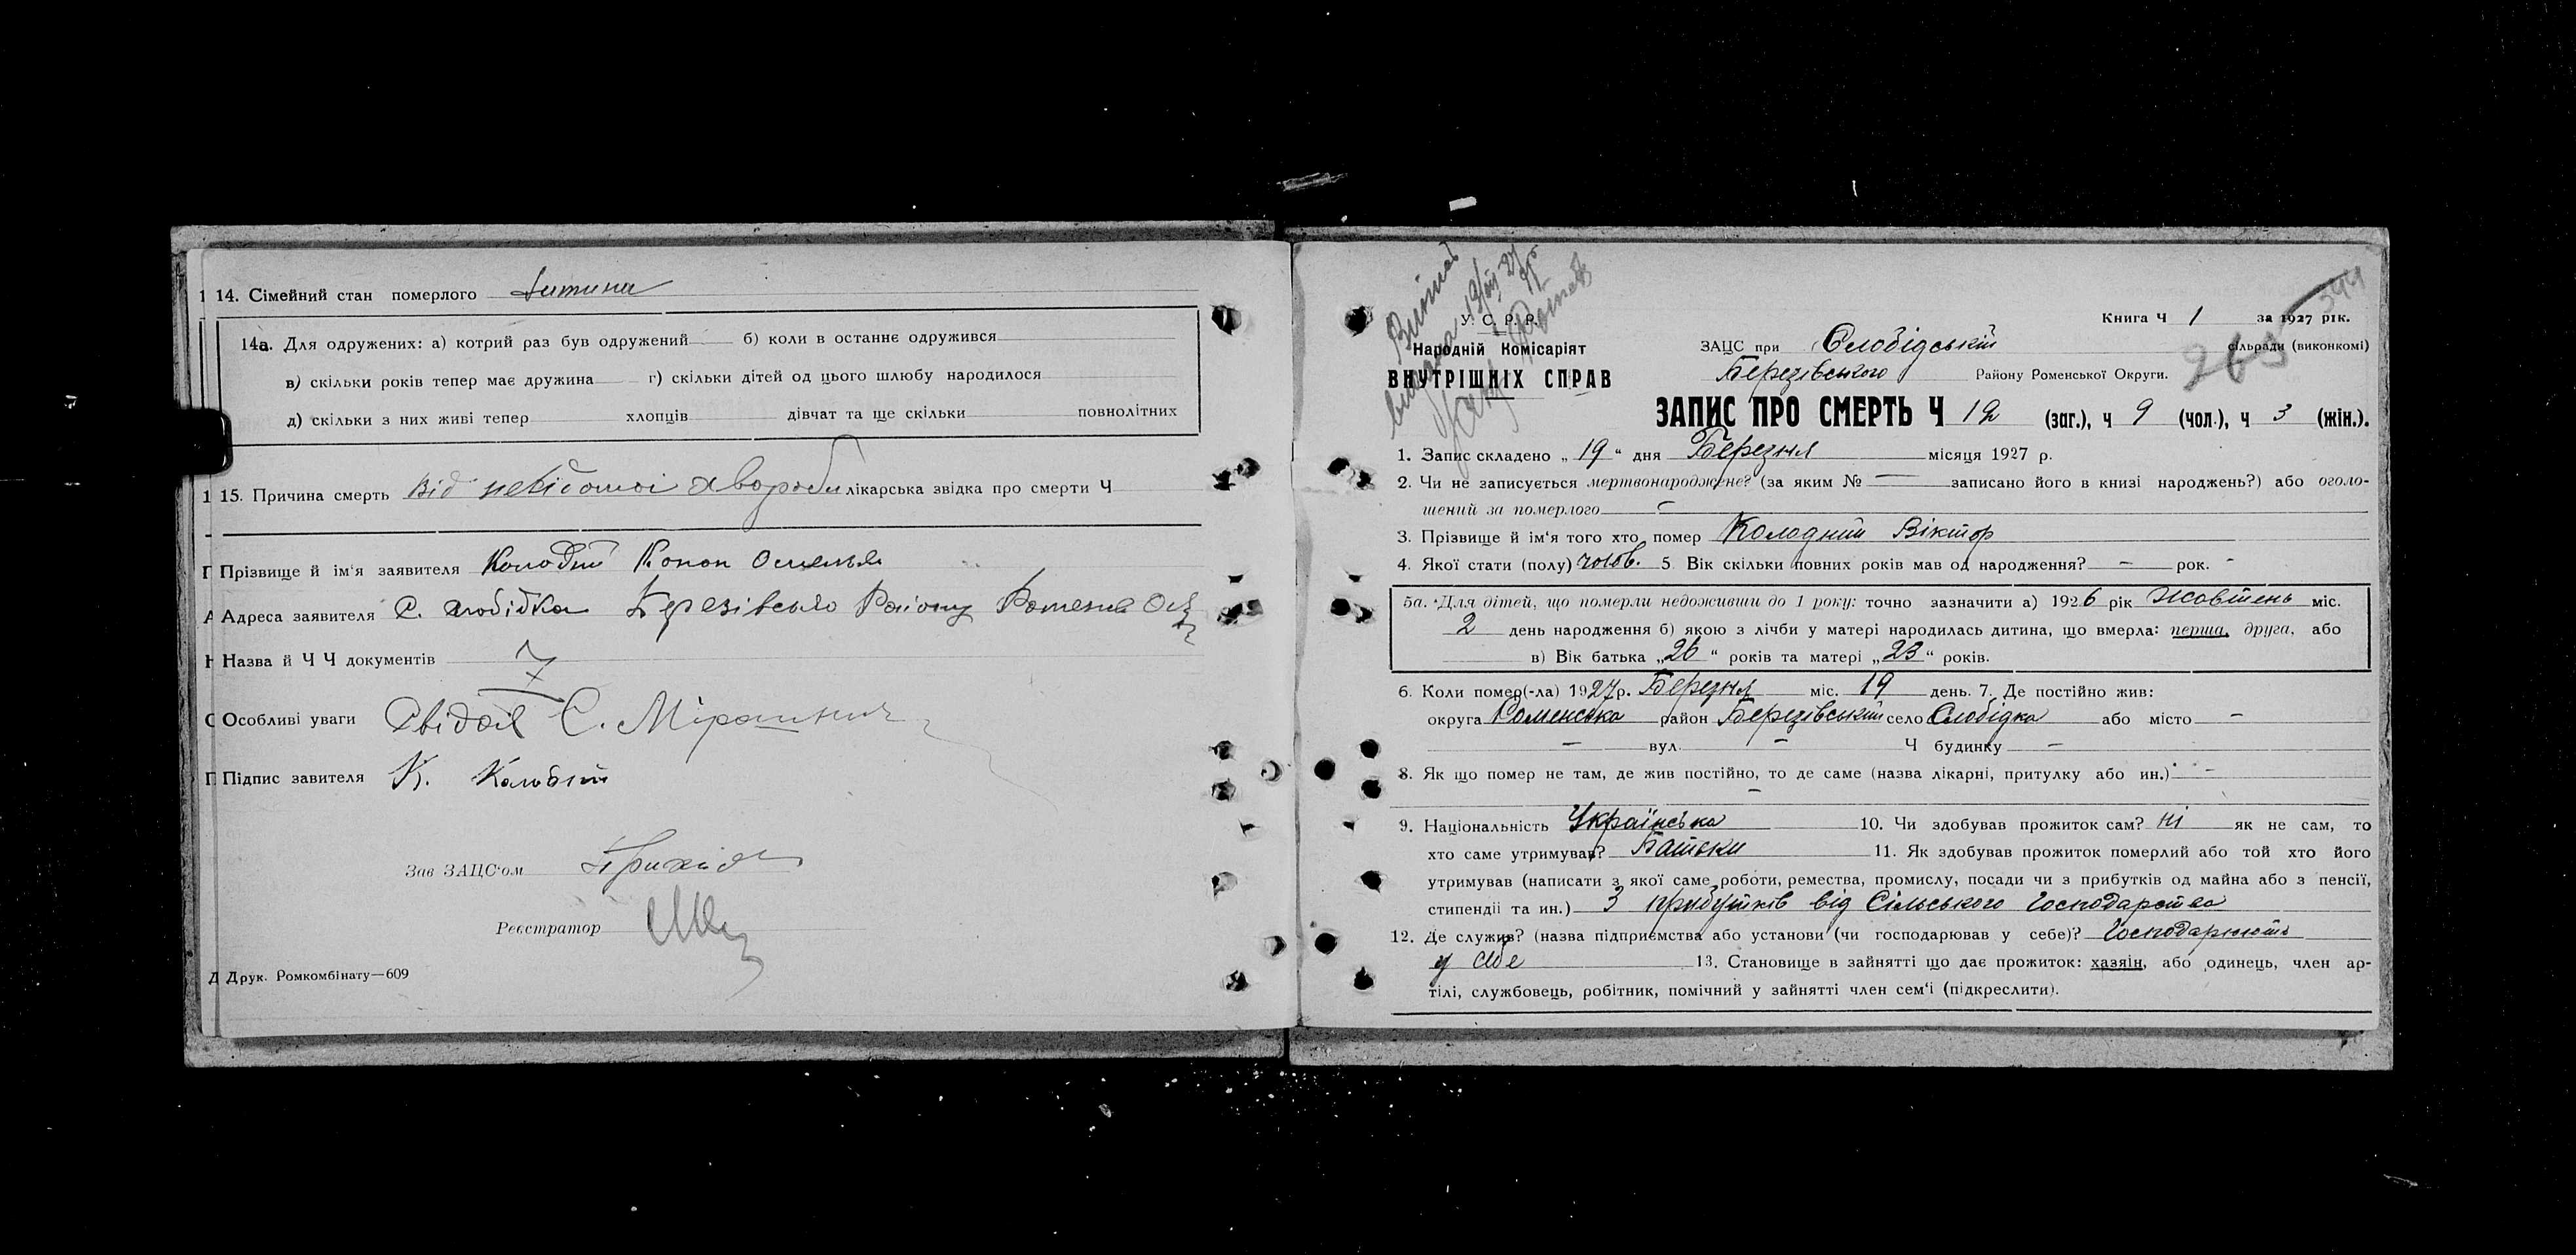 14. Сімейний стан померлого Дитина
14а. Для одружених: а) котрий раз був одружений б) коли в останнє одружився
в) скільки років тепер має дружина г) скільки дітей од цього шлюбу народилося
д) скільки з них живі тепер хлопців дівчат та ще скільки повнолітних
15. Причина смерть Від невідомої хвороби лікарська звідка про смерти Ч
Прізвище й ім'я заявителя Колодній Конон
Адреса заявителя С. Слобідка Березівсько Району Роменсько Окр
Назва й Ч Ч документів 7
Особливі уваги Свідок С.
Підпис завителя К. Колодній
Зав ЗАЦС'ом
Реєстратор
Друк. Ромкомбінату—609
344
Книга Ч 1 за 1927 рік.
У. С. Р. Р.
Народній Комісаріят
ВНУТРІШНІХ СПРАВ
ЗАЦС при Слобідській сільради (виконкомі)
Березівського Району Роменської Округи.
263
ЗАПИС ПРО СМЕРТЬ Ч 12 (заг.), ч 9 (чол.), ч 3 (жін.).
1. Запис складено „ 19 “ дня Березня місяця 1927 р.
2. Чи не записується мертвонароджене? (за яким № — записано його в книзі народжень?) або оголо-
шений за померлого —
3. Прізвище й ім'я того хто помер Колодний Віктор
4. Якої стати (полу) чолов. 5 Вік скільки повних років мав од народження? — рок. -
5а. Для дітей, що померли недоживши до 1 року: точно зазначити а) 1926 рік Жовтень міс.
2 день народження б) якою з лічби у матері народилась дитина, що вмерла: перша, друга, або
в) Вік батька „ 26 “ років та матері „ 23 “ років.
6. Коли помер(-ла) 1927р. Березня міс. 19 день. 7. Де постійно жив:
округа Роменська район Березівський село Слобідка або місто —
— вул. — Ч будинку —
8. Як що помер не там, де жив постійно, то де саме (назва лікарні, притулку або ин.) —
—
9. Національність Українська 10. Чи здобував прожиток сам? ні як не сам, то
хто саме утримував? Батьки 11. Як здобував прожиток померлий або той хто його
утримував (написати з якої саме роботи, ремества, промислу, посади чи з прибутків од майна або з пенсії,
стипендіі та ин.) З прибутків від Сільського господарства
12. Де служив? (назва підприємства або установи (чи господарював у себе)? Господарюють
у себе 13. Становище в зайнятті що дає прожиток: хазяін, або одинець, член ар-
тілі, службовець, робітник, помічний у зайнятті член сем'і (підкреслити).